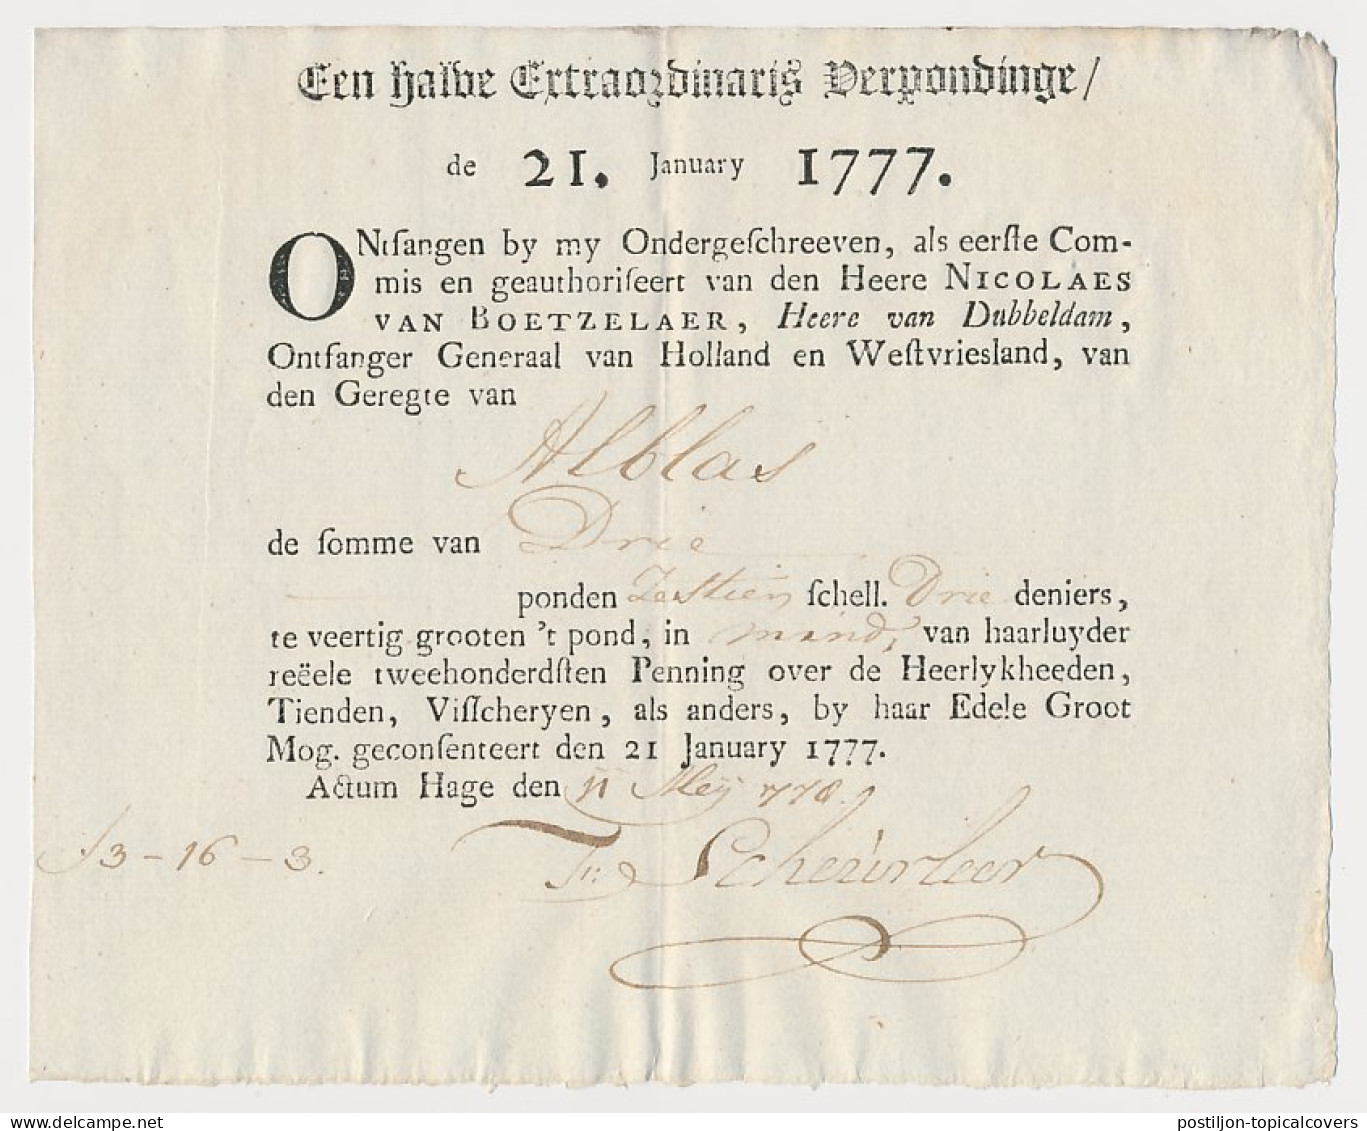 Een halve Extraordinaris Verpondinge/
de 21. January 1777.
ONtfangen by my Ondergeſchreeven, als eerſte Com-
mis en geauthoriſeert van den Heere NICOLAES
VAN BOETZELAER, Heere van Dubbeldam,
Ontfanger Generaal van Holland en Weſtvriesland, van
den Geregte van
Alblas
de ſomme van Drie
ponden Zestien ſchell. Drie deniers,
te veertig grooten 't pond, in mind, van haarluyder
reëele tweehonderdſten Penning over de Heerlykheeden,
Tienden, Viſſcheryen, als anders, by haar Edele Groot
Mog. geconſenteert den 21 January 1777.
Actum Hage den 11 Meij 778.
ƒ3-16-3.
Scheürleer
HipPostcard.com
postiljon-topicalcovers